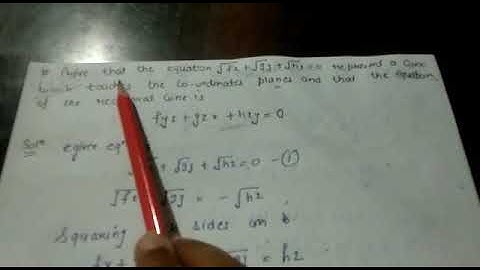 Prove that the equation √fx + √gy + √hz = 0 represent a Cone
touches the co-ordinates planes and that the equation
of the reciprocal Cone is
fyz + gzx + hxy = 0
Solⁿ egiven eqⁿ
+ √gy + √hz = 0 —(1)
√fx √gy = - √hz
Squaring sides on b
fx + = hz